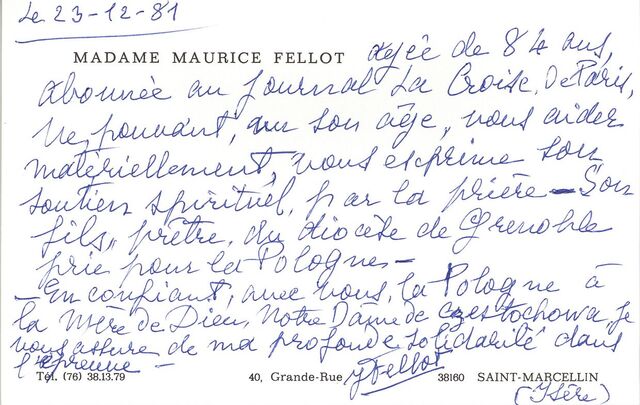 Le 23-12-81
MADAME MAURICE FELLOT agée de 84 ans,
abonnée au journal La Croise, De Paris,
ne, pouvant, vu son âge, vous aider
matériellement, vous exprime son
soutien spirituel, par la prière - Son
fils, prêtre, du diocèse de Grenoble
prie pour la Pologne -
- En confiant, avec vous, la Pologne à
la Mère de Dieu, Notre Dame de Czestochowa, je
vous assure de ma profonde solidarité dans
l'épreuve -
YFellot
Tél. (76) 38.13.79 40, Grande-Rue 38160 SAINT-MARCELLIN
(Isère)